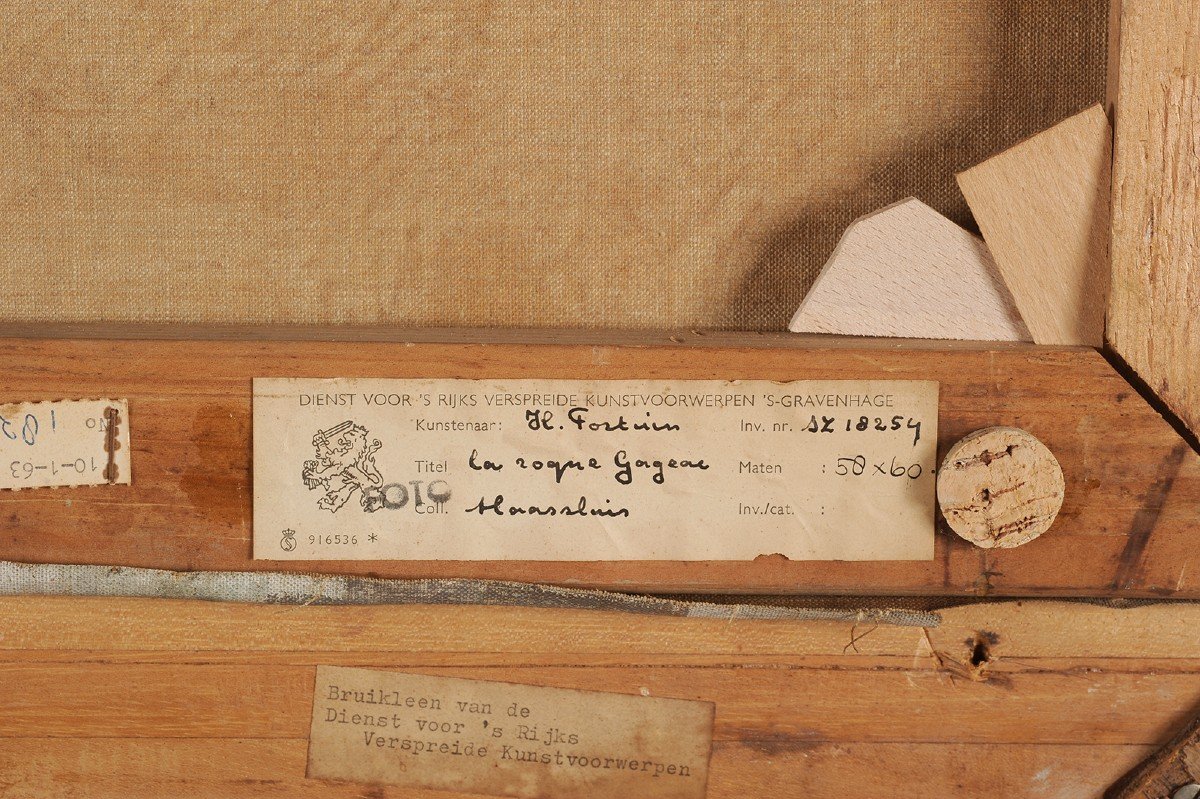 DIENST VOOR 'S RIJKS VERSPREIDE KUNSTVOORWERPEN 'S-GRAVENHAGE
Kunstenaar: H. Fortuin Inv. nr. SZ 18254
Titel la roque Gageac Maten : 50 x 60.
FOTO
Coll. Maassluis Inv./cat. :
916536 *
No
10-1-63
Bruikleen van de
Dienst voor 's Rijks
Verspreide Kunstvoorwerpen